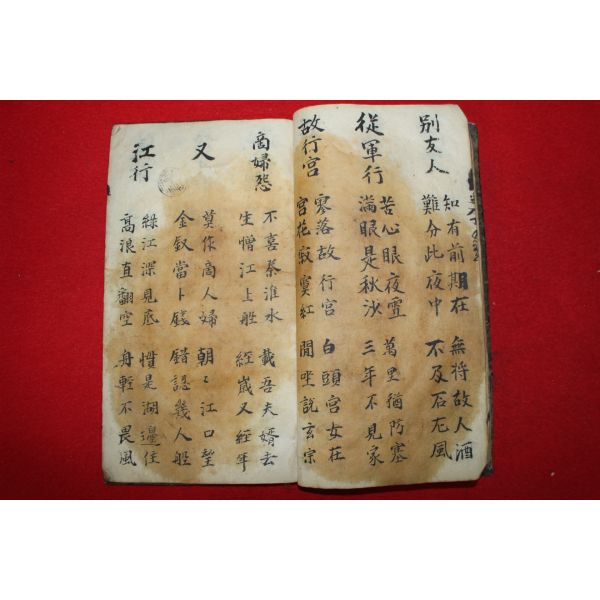 別友人
知有前期在
難分此夜中
無將故人酒
不及石尤風
從軍行
苦心眼夜雪
滿眼是秋沙
萬里猶防塞
三年不見家
故行宮
寥落故行宮
宮花寂寞紅
白頭宮女在
閒坐說玄宗
商婦怨
不喜秦淮水
生憎江上船
載吾夫婿去
經歲又經年
又
莫作商人婦
金釵當卜錢
朝〻江口望
錯認幾人船
江行
綠江深見底
高浪直翻空
慣是湖邊住
舟輕不畏風